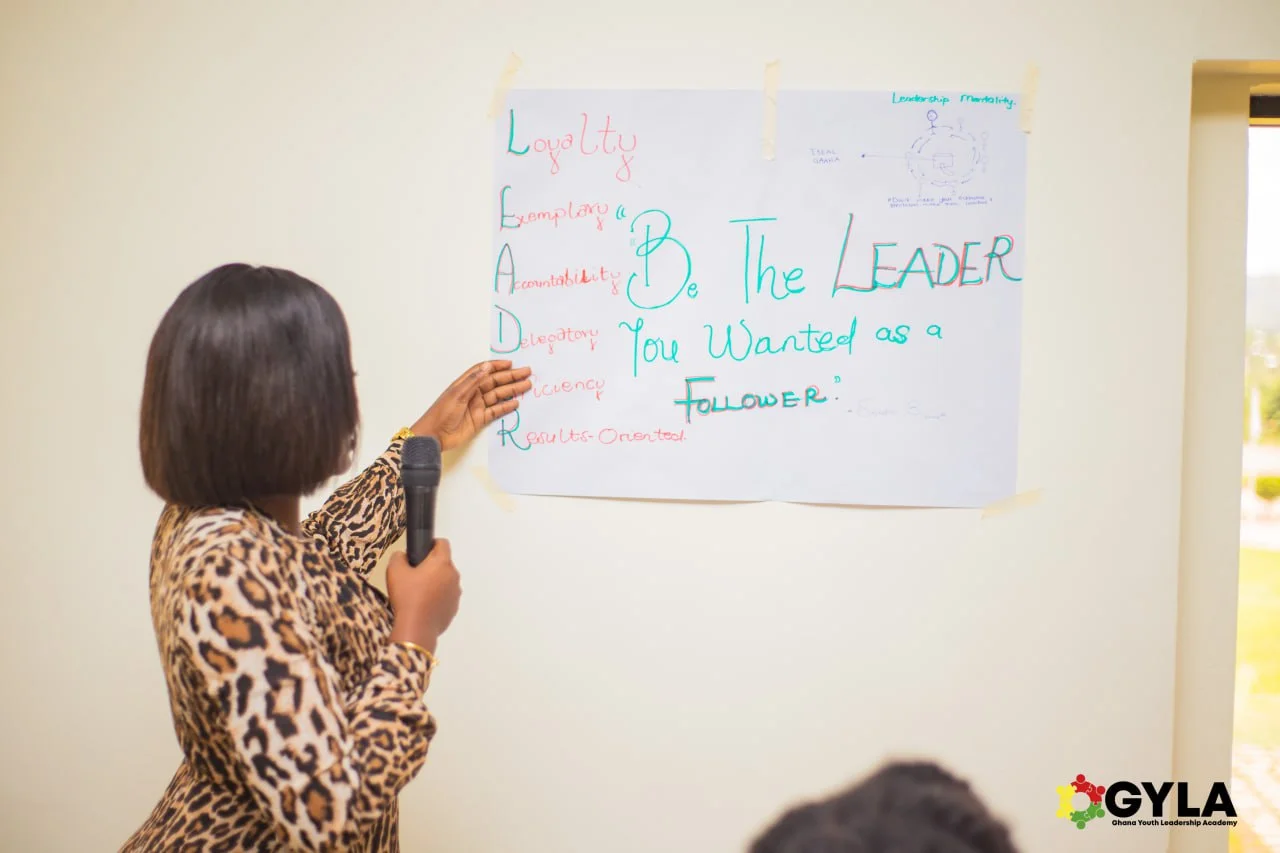 Leadership Mentality.
Loyalty
Exemplary
Accountability
Delegatory
iciency
Results-Oriented
"Be The LEADER
You Wanted as a
FOLLOWER."
GYLA
Ghana Youth Leadership Academy